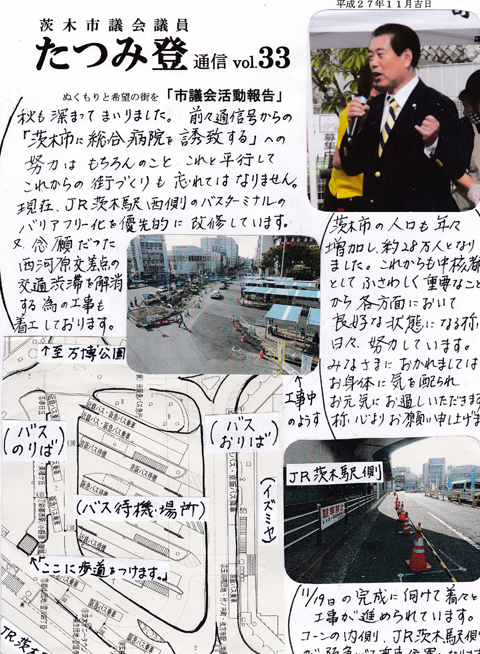 平成27年11月吉日
茨木市議会議員
たつみ登 通信 vol.33
ぬくもりと希望の街を「市議会活動報告」
秋も深まってまいりました。前々通信号からの
「茨木市に総合病院を誘致する」への
努力はもちろんのこと これと平行して
これからの街づくりも忘れてはなりません。
現在、JR茨木駅西側のバスターミナルの
バリアフリー化を優先的に改修しています。
又、念願だった
西河原交差点の
交通渋滞を解消
する為の工事も
着工しております。
茨木市の人口も年々
増加し、約28万人となり
ました。これからも中核都
としてふさわしく重要なこと
から 各方面において
良好な状態になる様
日々、努力しています。
みなさまにおかれましては
お身体に気を配られ
お元気にお過しいただきます
様 心よりお願い申し上げま
↑至万博公園
↑
工事中
のようす
(バス
のりば)
(バス
おりば)
(バス待機場所)
(イズミヤ)
「ここに歩道をつけます。」
JR茨木
JR茨木駅側
11/19日の完成に向けて着々と
工事が進められています。
コーンの内側、JR茨木駅側